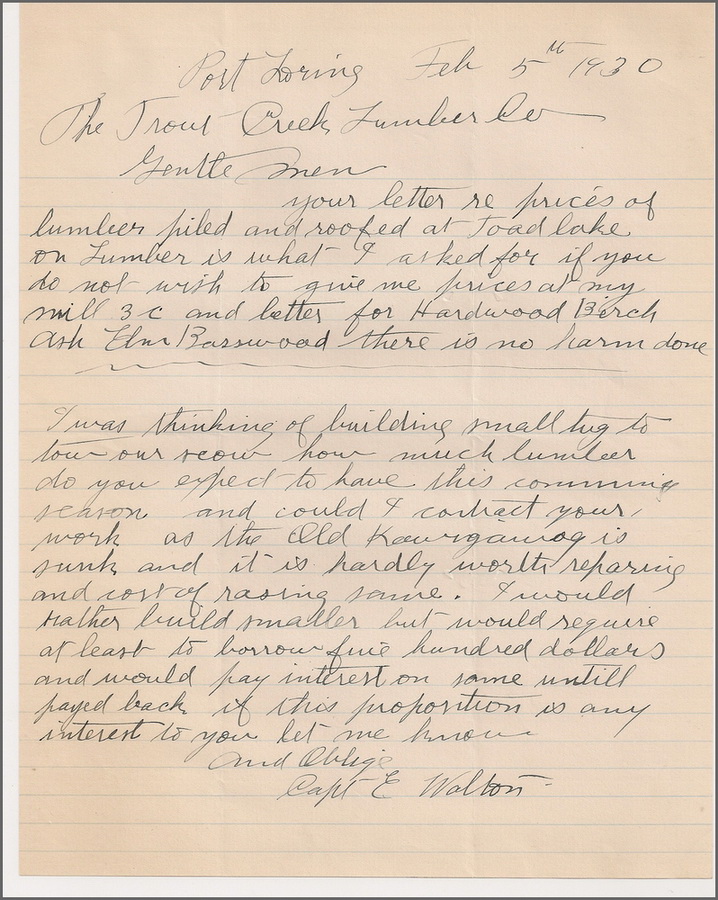 Port Loring Feb 5th 1930
The Trout Creek Lumber Co
Gentle men
your letter re prices of
lumber piled and roofed at toad lake
on Lumber is what I asked for if you
do not wish to give me prices at my
mill 3c and better for Hardwood Birch
Ash Elm Basswood there is no harm done
I was thinking of building small tug to
tow our scow how much lumber
do you expect to have this comming
season and could I contract your
work as the Old Kawigamog is
sunk and it is hardly worth reparing
and cost of rasing same. I would
rather build smaller but would require
at least to borrow five hundred dollars
and would pay interest on same untill
payed back if this proposition is any
interest to you let me know
and Oblige
Capt E Walton